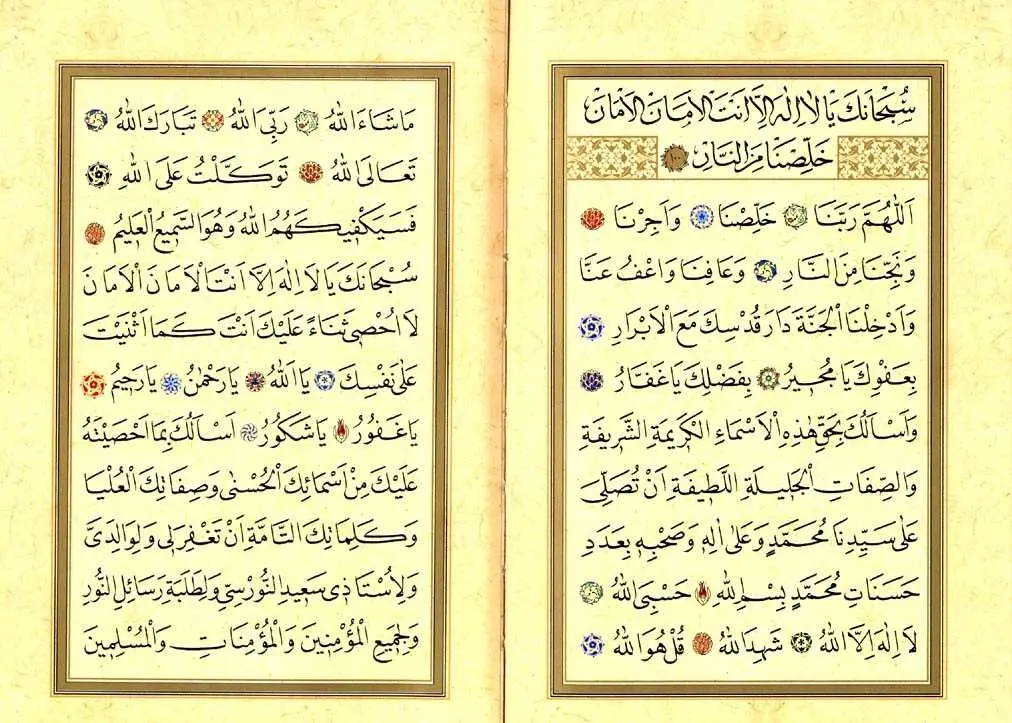 سُبْحَانَكَ يَا لَا اِلٰهَ اِلَّا اَنْتَ الْاَمَانَ الْاَمَانَ
خَلِّصْنَا مِنَ النَّارِ ١٠٠
اَللّٰهُمَّ رَبَّنَا خَلِّصْنَا وَاَجِرْنَا
وَنَجِّنَا مِنَ النَّارِ وَعَافِنَا وَاعْفُ عَنَّا
وَاَدْخِلْنَا الْجَنَّةَ دَارَ قُدْسِكَ مَعَ الْاَبْرَارِ
بِعَفْوِكَ يَا مُجِيرُ بِفَضْلِكَ يَا غَفَّارُ
وَاَسْاَلُكَ بِحَقِّ هٰذِهِ الْاَسْمَاءِ الْكَرِيمَةِ الشَّرِيفَةِ
وَالصِّفَاتِ الْجَلِيلَةِ اللَّطِيفَةِ اَنْ تُصَلِّىَ
عَلٰى سَيِّدِنَا مُحَمَّدٍ وَعَلٰى اٰلِهِ وَصَحْبِهِ بِعَدَدِ
حَسَنَاتِ مُحَمَّدٍ بِسْمِ اللّٰهِ حَسْبِىَ اللّٰهُ
لَا اِلٰهَ اِلَّا اللّٰهُ شَهِدَ اللّٰهُ قُلْ هُوَ اللّٰهُ
مَا شَاءَ اللّٰهُ رَبِّىَ اللّٰهُ تَبَارَكَ اللّٰهُ
تَعَالَى اللّٰهُ تَوَكَّلْتُ عَلَى اللّٰهِ
فَسَيَكْفِيكَهُمُ اللّٰهُ وَهُوَ السَّمِيعُ الْعَلِيمُ
سُبْحَانَكَ يَا لَا اِلٰهَ اِلَّا اَنْتَ الْاَمَانَ الْاَمَانَ
لَا اُحْصِى ثَنَاءً عَلَيْكَ اَنْتَ كَمَا اَثْنَيْتَ
عَلٰى نَفْسِكَ يَا اَللّٰهُ يَا رَحْمٰنُ يَا رَحِيمُ
يَا غَفُورُ يَا شَكُورُ اَسْاَلُكَ بِمَا اَحْصَيْتَهُ
عَلَيْكَ مِنْ اَسْمَائِكَ الْحُسْنٰى وَصِفَاتِكَ الْعُلْيَا
وَكَلِمَاتِكَ التَّامَّةِ اَنْ تَغْفِرَ لِى وَلِوَالِدَىَّ
وَلِاُسْتَاذِى سَعِيدِ النُّورْسِىِّ وَلِطَلَبَةِ رَسَائِلِ النُّورِ
وَلِجَمِيعِ الْمُؤْمِنِينَ وَالْمُؤْمِنَاتِ وَالْمُسْلِمِينَ